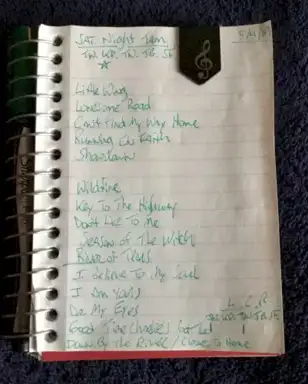 SAT. Night Jam 5/4/8
TN. KR. TN. JB. SF
Little Wing
Lonesome Road
Can't Find My Way Home
Running On Earth
Showdown
Wildfire
Key To The Highway
Don't Lie To Me
Season of The Witch
River of Tears
I believe To My Soul
I Am Yours
Do My Eyes
L C R
Good Time Charlie's Got The
Down By The River / Close To Home